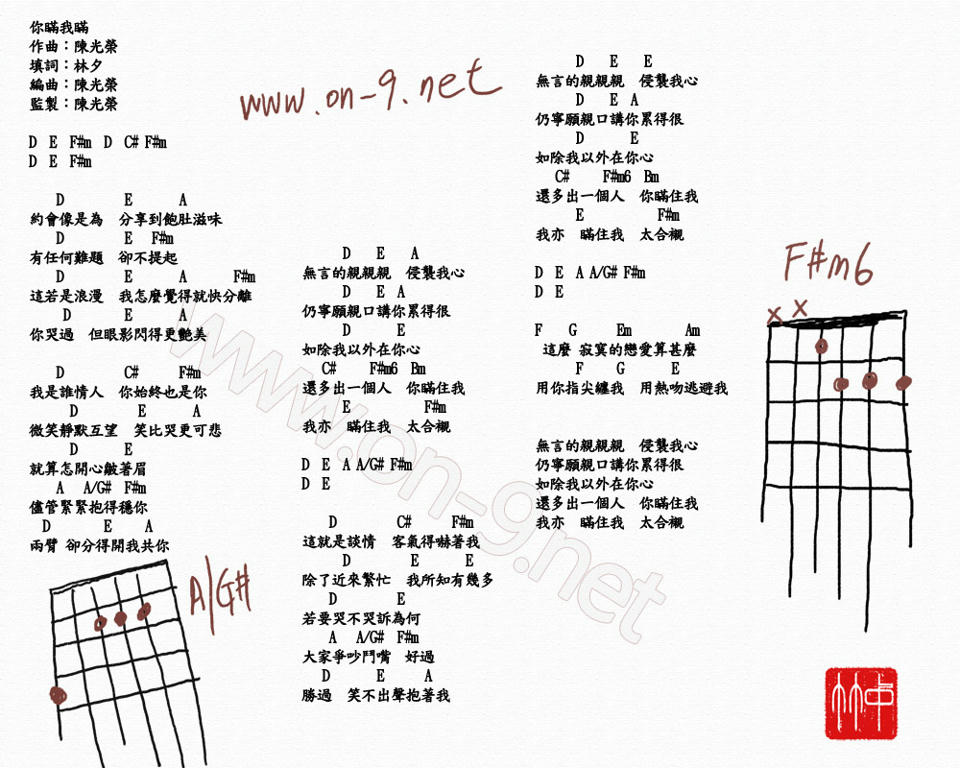 你瞞我瞞
作曲：陳光榮
填詞：林夕
編曲：陳光榮
監製：陳光榮
www.on-9.net
D E F#m D C# F#m
D E F#m
D E A
約會像是為 分享到飽肚滋味
D E F#m
有任何難題 卻不提起
D E A F#m
這若是浪漫 我怎麼覺得就快分離
D E A
你哭過 但眼影閃得更艷美
D C# F#m
我是誰情人 你始終也是你
D E A
微笑靜默互望 笑比哭更可悲
D E
就算怎開心皺著眉
A A/G# F#m
儘管緊緊抱得穩你
D E A
兩臂 卻分得開我共你
A/G#
D E A
無言的親親親 侵襲我心
D E A
仍寧願親口講你累得很
D E
如除我以外在你心
C# F#m6 Bm
還多出一個人 你瞞住我
E F#m
我亦 瞞住我 太合襯
D E A A/G# F#m
D E
D C# F#m
這就是談情 客氣得嚇著我
D E E
除了近來繁忙 我所知有幾多
D E
若要哭不哭訴為何
A A/G# F#m
大家爭吵鬥嘴 好過
D E A
勝過 笑不出聲抱著我
D E E
無言的親親親 侵襲我心
D E A
仍寧願親口講你累得很
D E
如除我以外在你心
C# F#m6 Bm
還多出一個人 你瞞住我
E F#m
我亦 瞞住我 太合襯
D E A A/G# F#m
D E
F G Em Am
這麼 寂寞的戀愛算甚麼
F G E
用你指尖纏我 用熱吻逃避我
無言的親親親 侵襲我心
仍寧願親口講你累得很
如除我以外在你心
還多出一個人 你瞞住我
我亦 瞞住我 太合襯
F#m6
x x
www.on-9.net